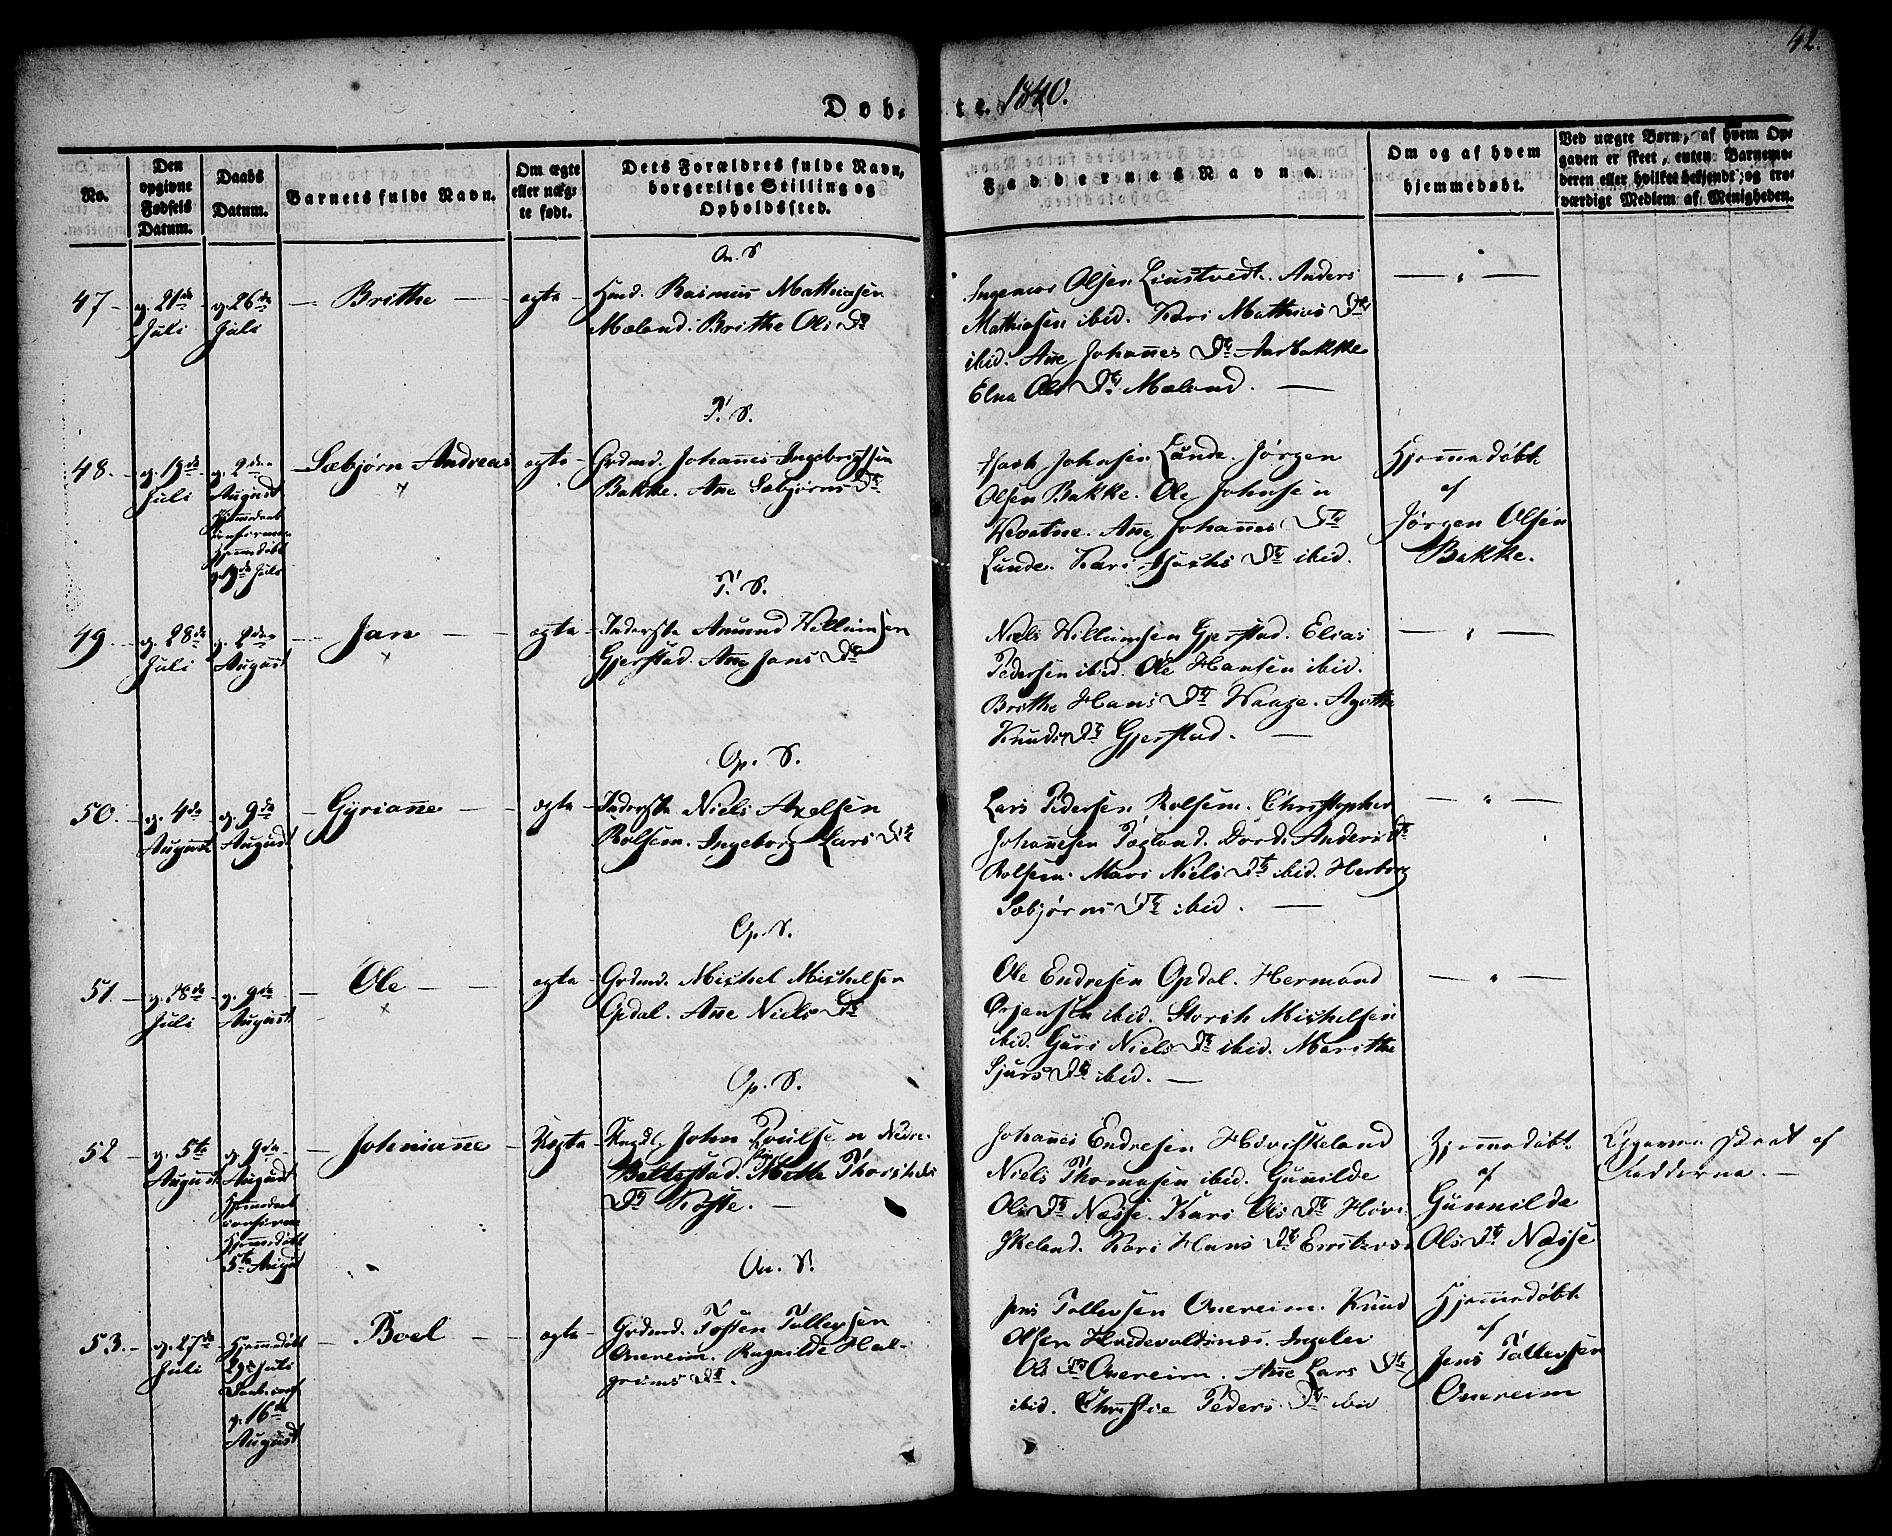 42.
Døb- te. 1840.
No.
Den
opgivne
Fødsels
Datum.
Daabs
Datum.
Barnets fulde Navn.
Om ægte
eller uæg-
te født.
Dets Forældres fulde Navn,
borgerlige Stilling og
Opholdssted.
Faddernes Navne.
Om og af hvem
hjemmedøbt.
Ved uægte Børn, af hvem Op-
gaven er skeet, enten Barnemo-
deren eller hvilket bekjendt og tro-
værdigt Medlem af Menigheden.
An. S
47
21de
Juli
26de
Juli
Brithe
ægte
Huusm. Rasmus Mathiasen
Mæland. Brithe Ols Dtr
Ingemor Olsen Liustvedt. Anders
Mathiasen ibid. Kari Mathias Dtr
ibid. Ane Johannes Dtr Aarbakke
Elna Ols Dtr Mæland.
T. S.
48.
19de
Juli
2den
August
Hjemmedaab
confirmeret
Hjemmedøbt
19de Juli
Sæbjørn Andreas
ægte
Grdmd. Johannes Ingebrigtsen
Bakke. Ane Sæbjørns Dtr
Johnsen Lunde. Jørgen
Olsen Bakke. Ole Johnsen
Ane Johannes Dtr
Lunde. Kari Dtr ibid.
Hjemmedøbt
af
Jørgen Olsen
Bakke.
T. S.
49.
28de
Juli
2den
August
Jan
ægte
Inderste Amund Willumsen
Gjerstad. Ane Jans Dtr
Niels Willumsen Gjerstad. Elias
Pedersen ibid. Ole Hansen ibid.
Brithe Hans Dtr Waage. Agathe
Knuds Dtr Gjerstad.
Op. S.
50.
4de
August
9de
August
Gyriane
ægte
Inderste Niels Axelsen
Rolsem. Ingeborg Lars Dtr
Lars Pedersen Rolsem. Christopher
Johannesen Døsland. Dordi Anders Dtr
Rolsem. Mari Niels Dtr ibid. Herborg
Sæbjørns Dtr ibid.
Op. S.
51.
18de
Juli
9de
August
Ole
ægte
Grdmd. Michel Michelsen
Opdal. Ane Niels Dtr
Ole Endresen Opdal. Hermand
Ørjansen ibid. Storik Michelsen
ibid. Guri Niels Dtr ibid. Marithe
Sjurs Dtr ibid.
Op. S.
52
5te
August
9de
August
Hjemmedaab
confirm.
Hjemmedøbt
5te August
Johniane
Uægte
Ungkl. John Poulsen Nedre-
Beltestad. Pige Mette Thorsteds
Dtr Koste.
Johannes Endresen Høviskeland
Niels Thomasen ibid. Gunilde
Ols Dtr Næsse. Kari Ols Dtr Høvi-
skeland. Kari Hans Dtr
Hjemmedøbt
af
Gunnilde
Ols Dtr Næsse
Opgaven skeet af
Fadderne.
An. S.
53.
27de
Juli
Hjemmedøbt
Juli
Daab conf.
16de
August
Boel
ægte
Grdmd. Tosten Tollevsen
Onereim. Ragnilde Hal-
grims Dtr.
Jens Tollevsen Onereim. Knud
Olsen Hvidevoldsnæs. Ingelev
Ols Dtr Onereim. Ane Lars Dtr
ibid. Christie Peders Dtr ibid
Hjemmedøbt
af
Jens Tollevsen
Onereim